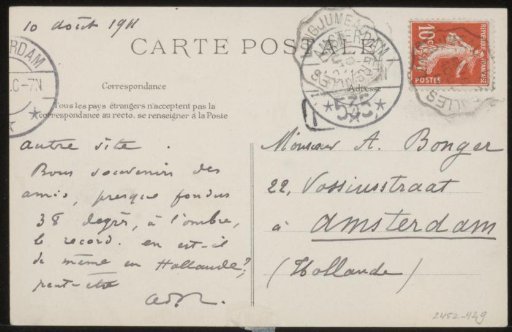 10 août 1911
CARTE POSTALE
Correspondance
Adresse
Tous les pays étrangers n'acceptent pas la
correspondance au recto, se renseigner à la Poste
autre site.
Bons souvenirs des
amis, presque fondus
38 degrés, à l'ombre,
le record. en est-il
de même en Hollande?,
peut-être
Monsieur A. Bonger
22, Vossiusstraat
à Amsterdam
(Hollande)
RDAM
-7N
AMSTERDAM
535
10c
REPUBLIQUE FRANÇAISE
POSTES
2452-429